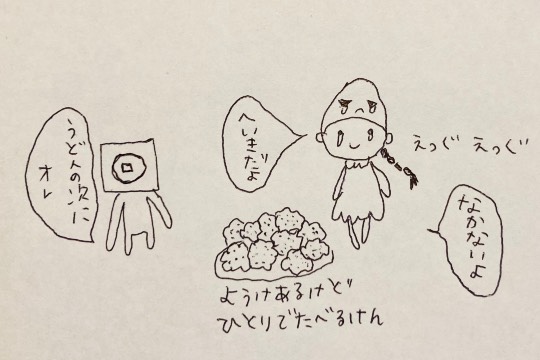 うどんの次に
オレ
へいきだよ
えっぐ えっぐ
なかないよ
ようけあるけど
ひとりでたべるけん